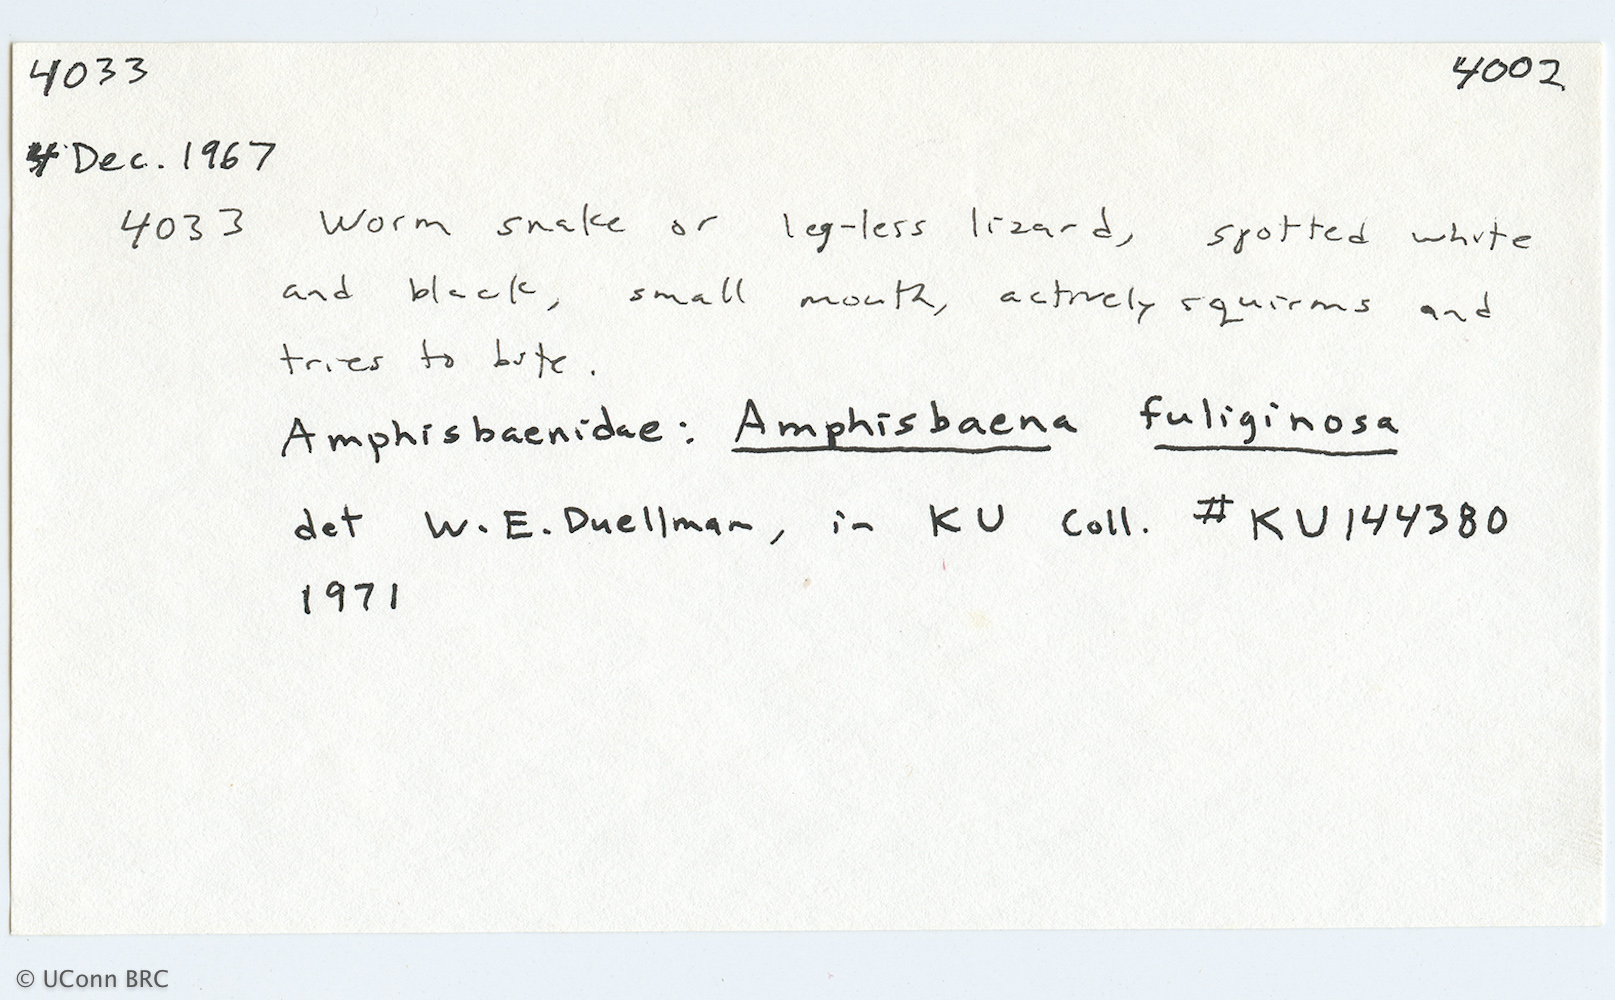 4033 4002
4 Dec. 1967
4033 Worm snake or leg-less lizard, spotted white
and black, small mouth, actively squirms and
tries to bite.
Amphisbaenidae: Amphisbaena fuliginosa
det W.E. Duellman, in KU Coll. # KU144380
1971
© UConn BRC